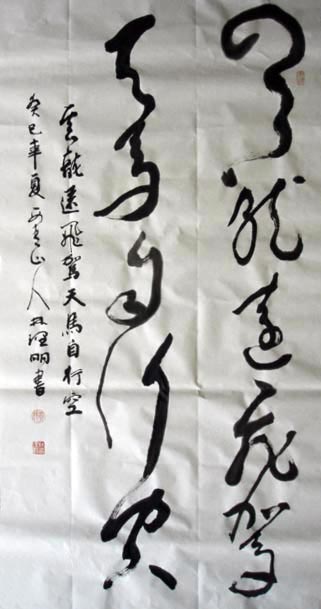 雲龍遠飛駕
天馬自行空
雲龍遠飛駕天馬自行空
癸巳年夏山人林明書